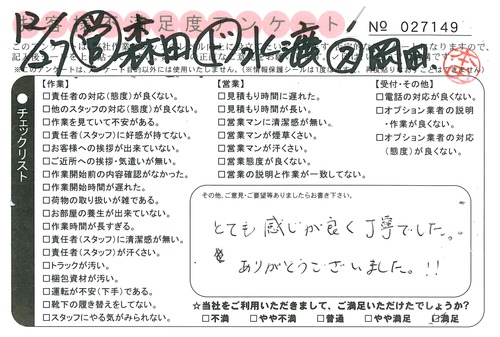 お客様満足度アンケート
№ 027149
12/27 営 森田 下 水渡 2 岡田
【作業】
□責任者の対応(態度)が良くない。
□他のスタッフの対応(態度)が良くない。
□作業を見ていて不安がある。
□責任者(スタッフ)に好感が持てない。
□お客様への挨拶が出来ていない。
□ご近所への挨拶・気遣いが無い。
□作業開始前の内容確認がなかった。
□作業開始時間が遅れた。
□荷物の取り扱いが雑である。
□お部屋の養生が出来ていない。
□作業時間が長すぎる。
□責任者(スタッフ)に清潔感が無い。
□責任者(スタッフ)が汗くさい。
□トラックが汚い。
□梱包資材が汚い。
□運転が不安(下手)である。
□靴下の履き替えをしてない。
□スタッフにやる気がみられない。
チェックリスト
【営業】
□見積もり時間に遅れた。
□見積もり時間が長い。
□営業マンに清潔感が無い。
□営業マンが煙草くさい。
□営業マンが汗くさい。
□営業態度が良くない。
□営業の説明と作業が一致してない。
【受付・その他】
□電話の対応が良くない。
□オプション業者の説明・作業が良くない。
□オプション業者の対応(態度)が良くない。
その他、ご意見・ご要望等ありましたらお書き下さい。
とても感じが良く丁寧でした。
ありがとうございました。!!
☆当社をご利用いただきまして、ご満足いただけたでしょうか?
□不満 □やや不満 □普通 □やや満足 □満足